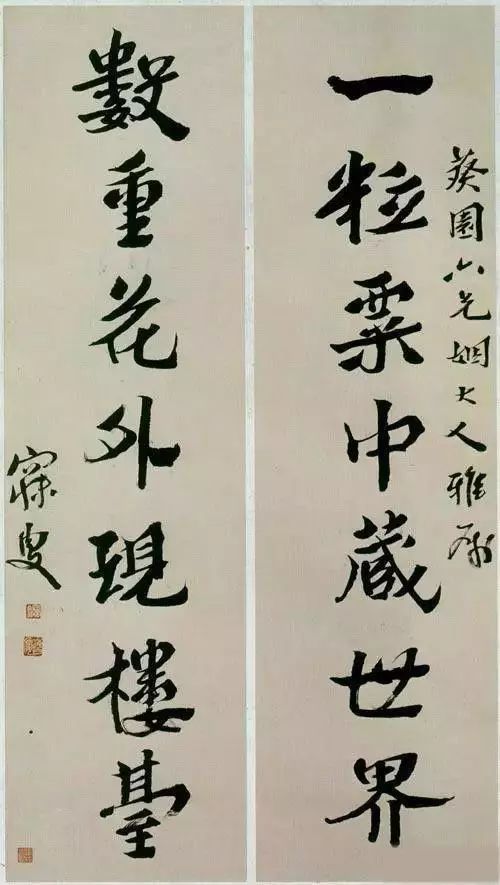 葵園六兄姻大人雅属
一粒粟中蔵世界
數重花外現樓臺
寐叟